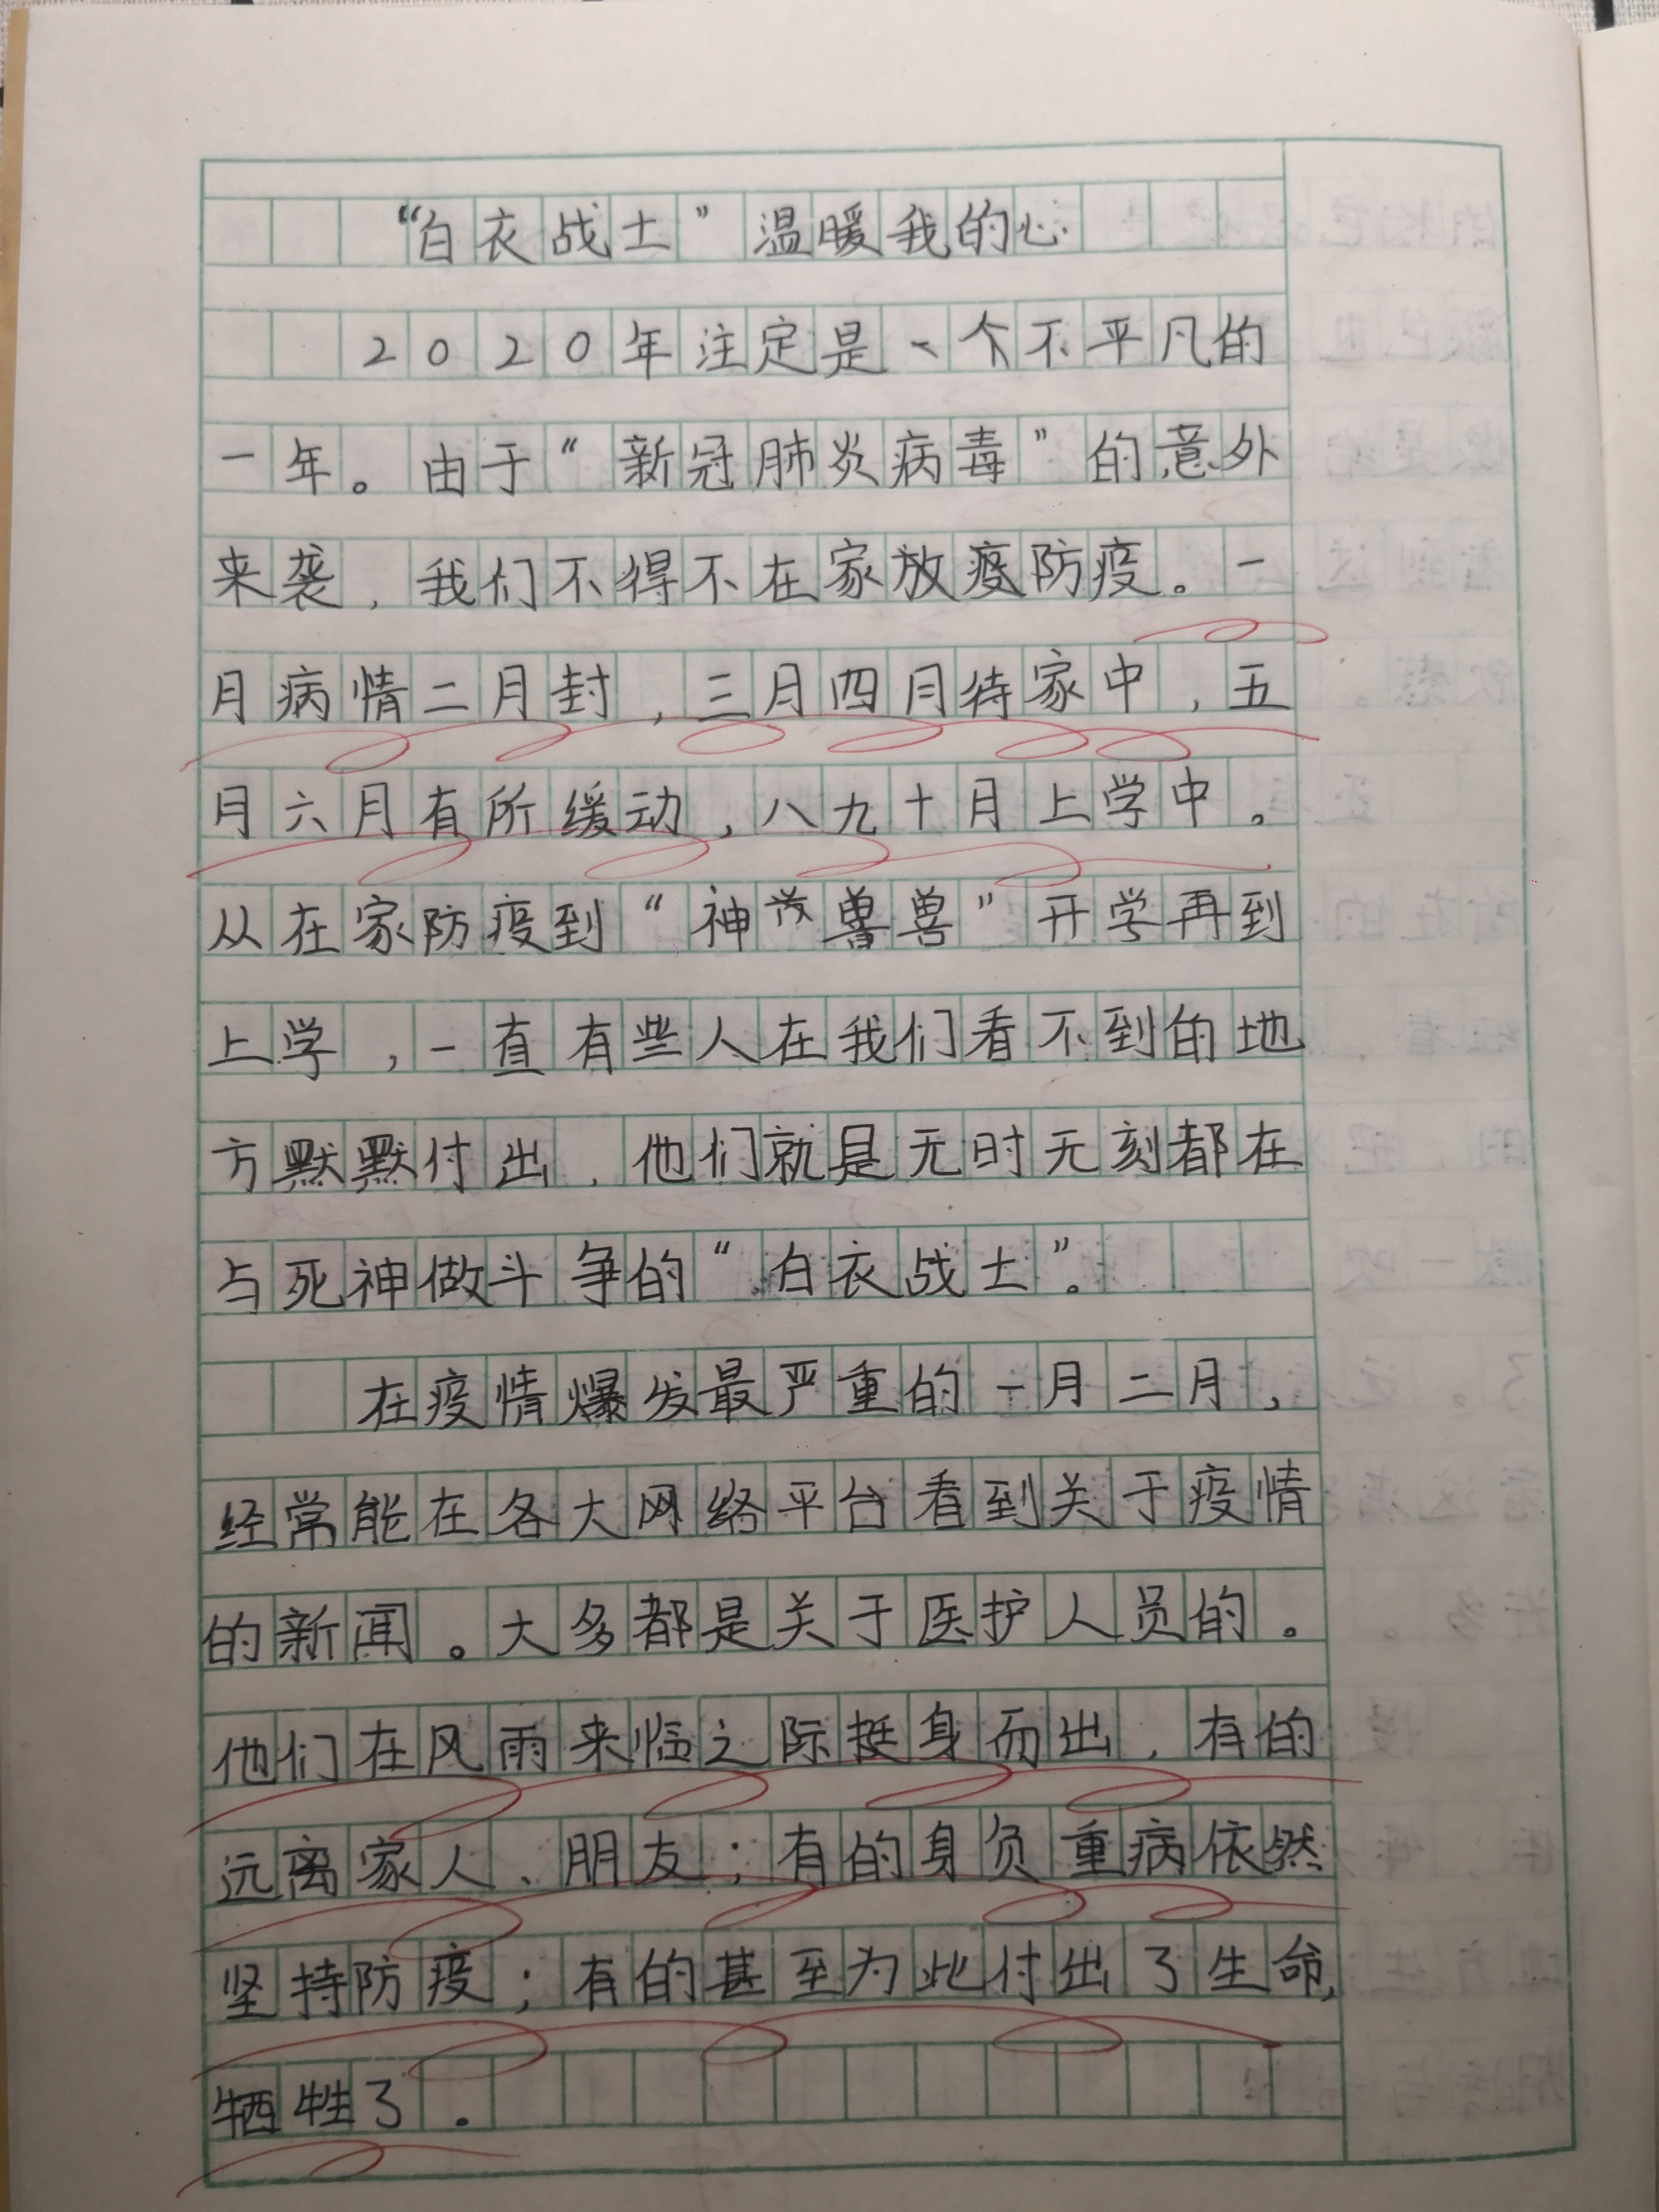 “白衣战士”温暖我的心
2020年注定是一个不平凡的
一年。由于“新冠肺炎病毒”的意外
来袭，我们不得不在家放疫防疫。一
月病情二月封，三月四月待家中，五
月六月有所缓动，八九十月上学中。
从在家防疫到“神兽兽”开学再到
上学，一直有些人在我们看不到的地
方默默付出，他们就是无时无刻都在
与死神做斗争的“白衣战士”。
在疫情爆发最严重的一月二月，
经常能在各大网络平台看到关于疫情
的新闻。大多都是关于医护人员的。
他们在风雨来临之际挺身而出，有的
远离家人、朋友；有的身负重病依然
坚持防疫；有的甚至为此付出了生命，
牺牲了。